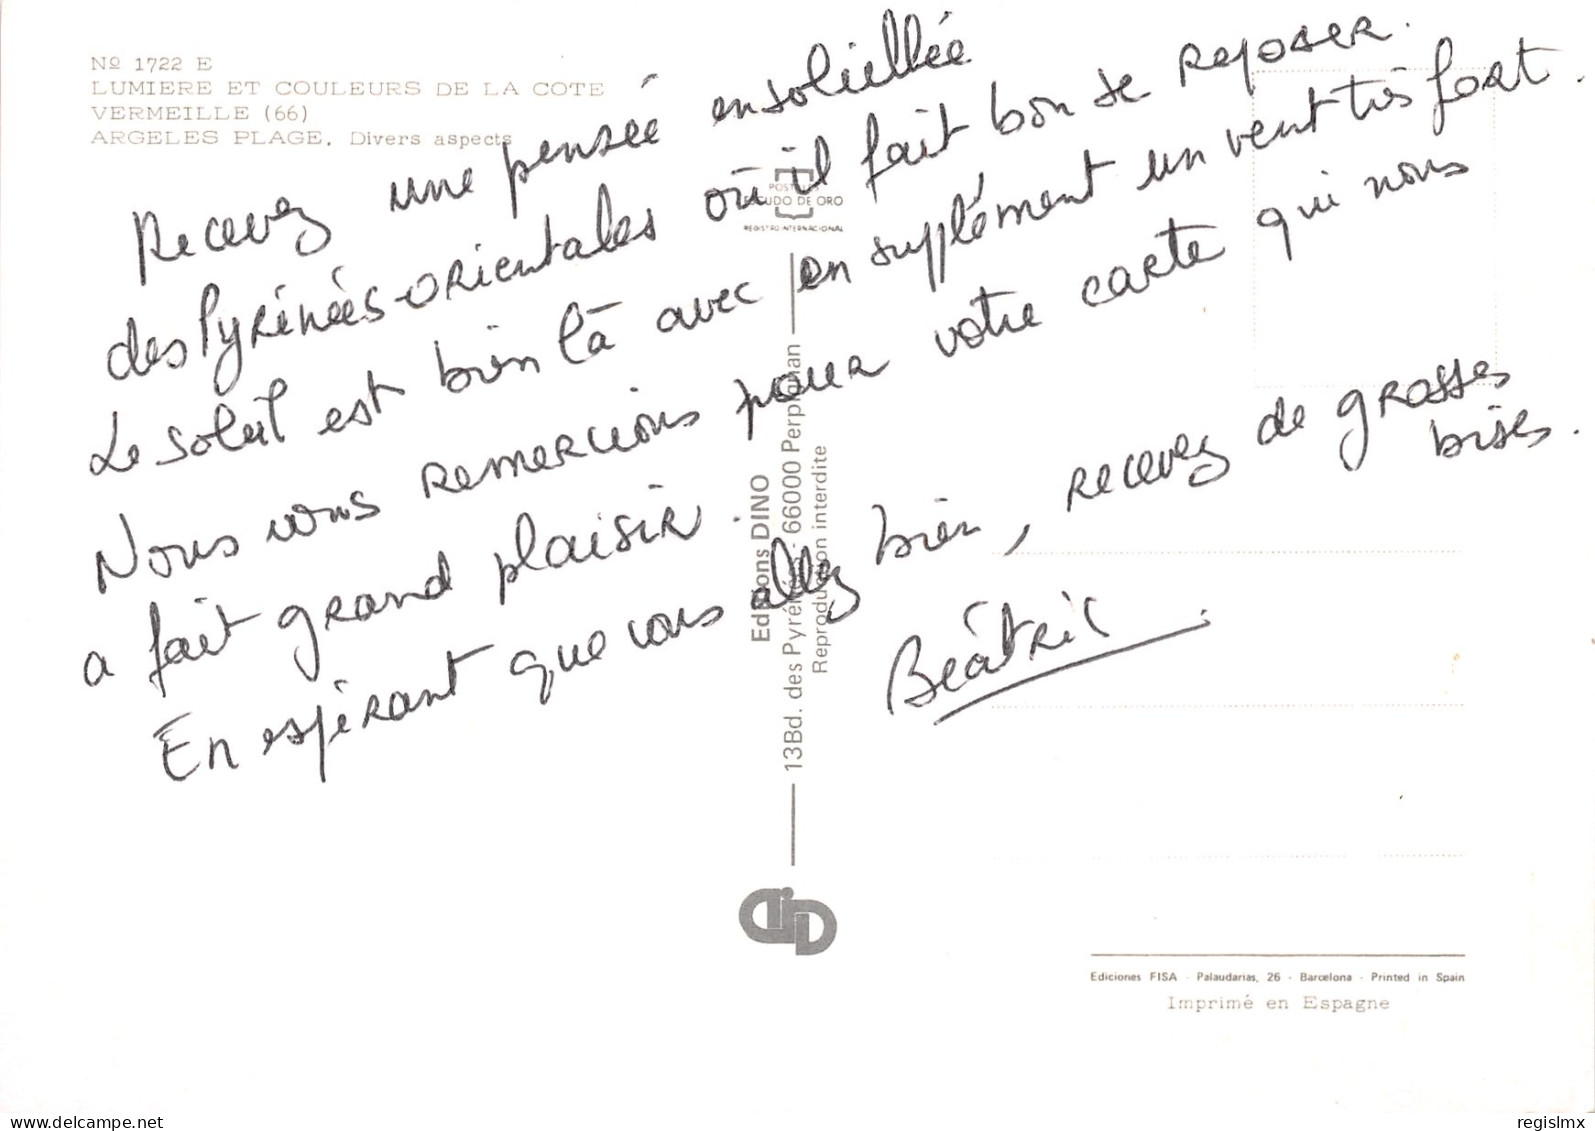 Nº 1722 E
LUMIERE ET COULEURS DE LA COTE
VERMEILLE (66)
ARGELES PLAGE. Divers aspects
Recevez une pensée ensoleillée
des Pyrénées-orientales où il fait bon se reposer.
Le soleil est bien là avec en supplément un vent très fort.
Nous vous remercions pour votre carte qui nous
a fait grand plaisir.
En espérant que vous allez bien, recevez de grosses
bises.
Béatrice
POSTALES
ESCUDO DE ORO
REGISTRO INTERNACIONAL
Editions DINO
13Bd. des Pyrénées - 66000 Perpignan
Reproduction interdite
Ediciones FISA - Palaudarias, 26 - Barcelona - Printed in Spain
Imprimé en Espagne
regislmx